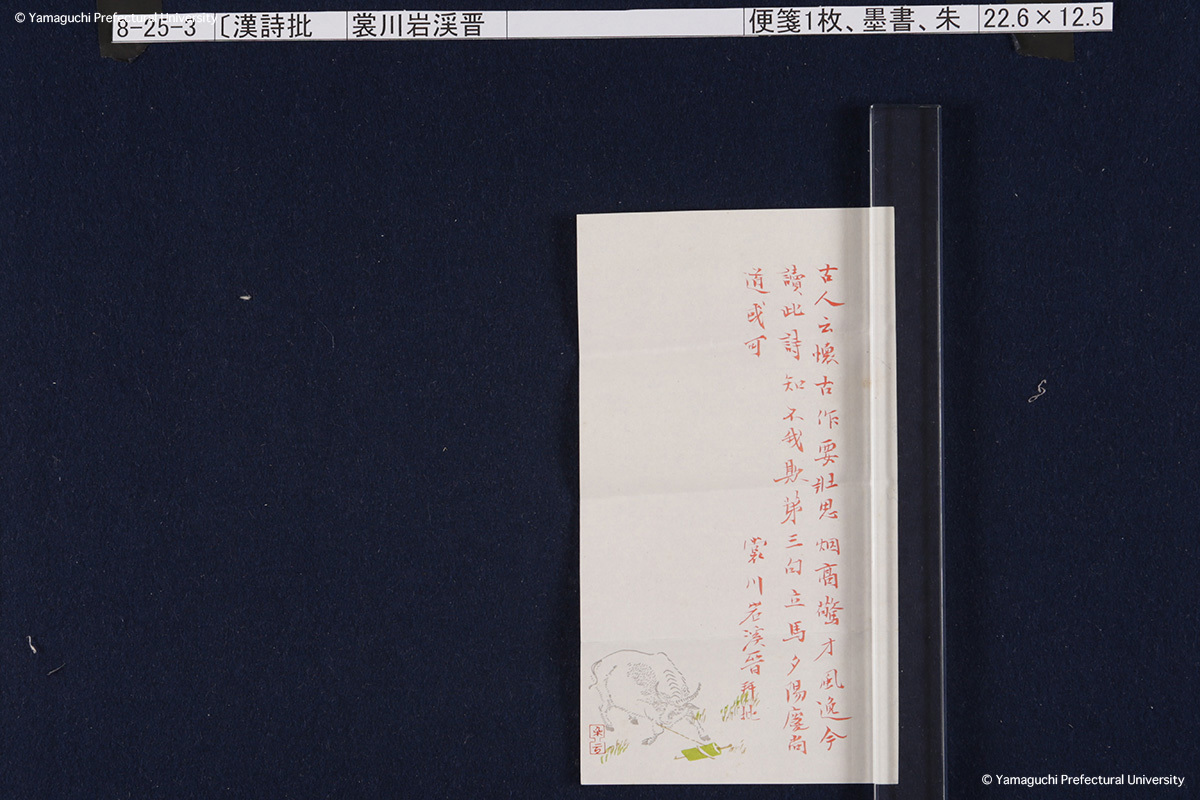 © Yamaguchi Prefectural University
8-25-3 〔漢詩批 裳川岩渓晋 便箋1枚、墨書、朱 22.6×12.5
古人云懐古作要壮思烟高驚才風逸今
讀此詩知不我欺第三句立馬夕陽廬尚
道或可
裳川岩溪晋拜批
朵云
© Yamaguchi Prefectural University